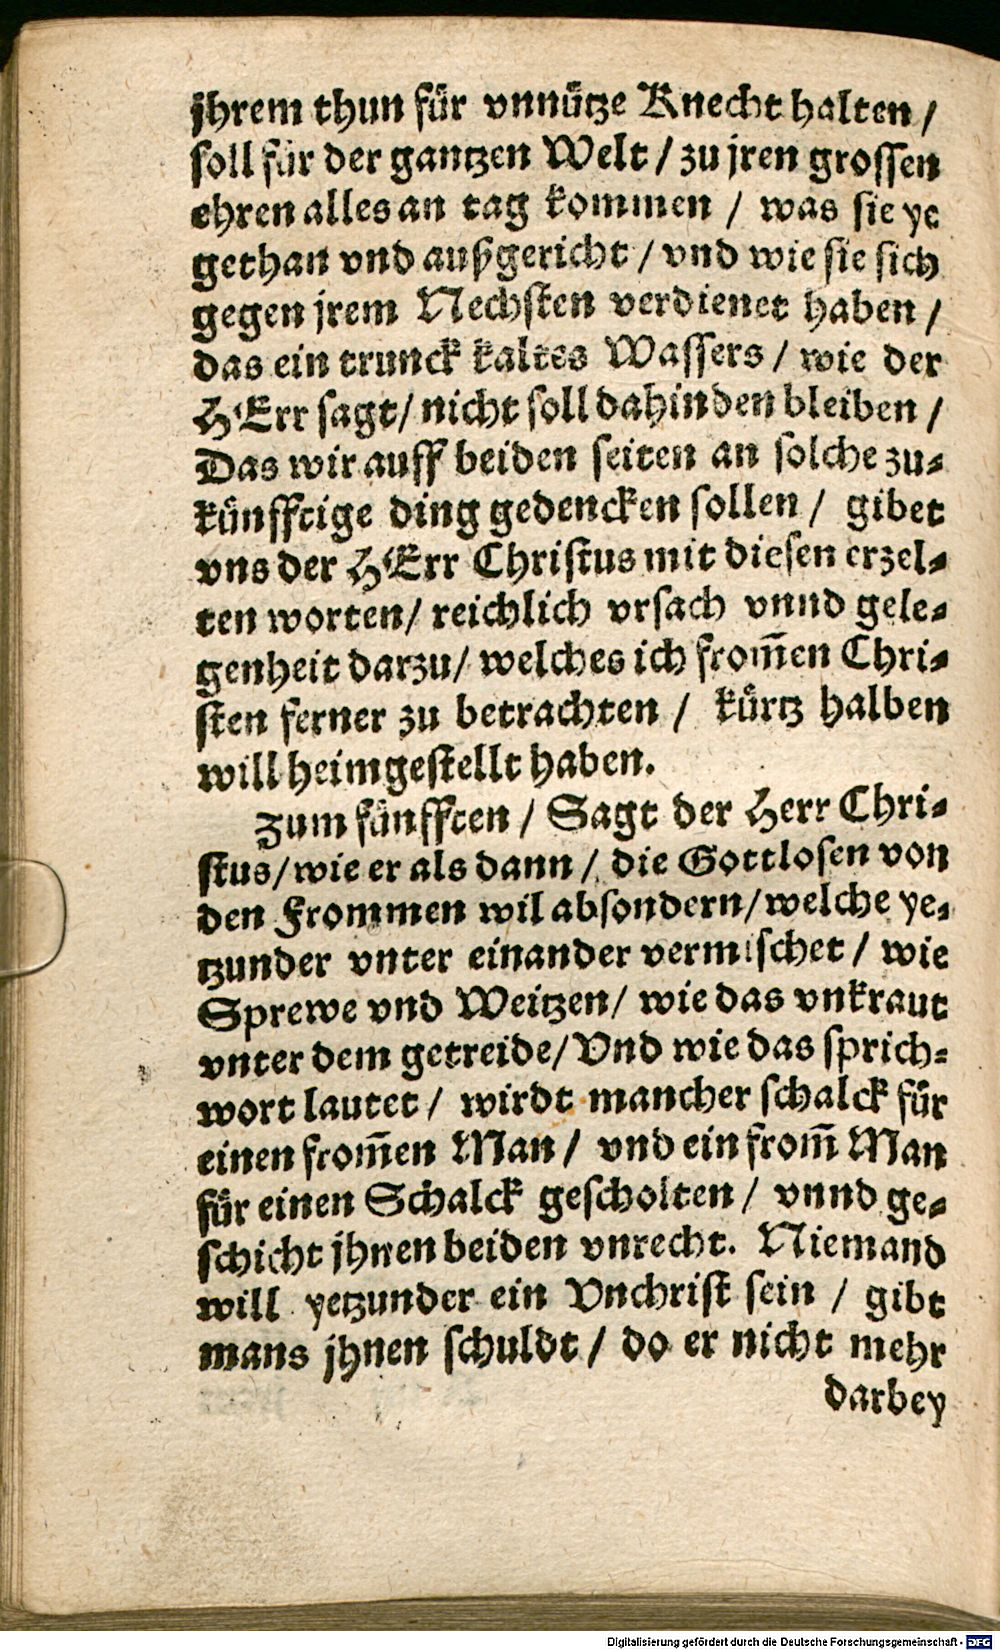 jhrem thun für vnnütze Knecht halten /
soll für der gantzen Welt / zu jren grossen
ehren alles an tag kommen / was sie ye
gethan vnd außgericht / vnd wie sie sich
gegen jrem Nechsten verdienet haben /
das ein trunck kaltes Wassers / wie der
HErr sagt / nicht soll dahinden bleiben /
Das wir auff beiden seiten an solche zu-
künfftige ding gedencken sollen / gibet
vns der HErr Christus mit diesen erzel-
ten worten / reichlich vrsach vnnd gele-
genheit darzu / welches ich from̄en Chri-
sten ferner zu betrachten / kürtz halben
will heimgestellt haben.
Zum fünfften / Sagt der Herr Chri-
stus / wie er als dann / die Gottlosen von
den Frommen wil absondern / welche ye-
tzunder vnter einander vermischet / wie
Sprewe vnd Weitzen / wie das vnkraut
vnter dem getreide / Vnd wie das sprich-
wort lautet / wirdt mancher schalck für
einen from̄en Man / vnd ein from̄ Man
für einen Schalck gescholten / vnnd ge-
schicht jhnen beiden vnrecht. Niemand
will yetzunder ein Vnchrist sein / gibt
mans jhnen schuldt / do er nicht mehr
darbey
Digitalisierung gefördert durch die Deutsche Forschungsgemeinschaft - DFG